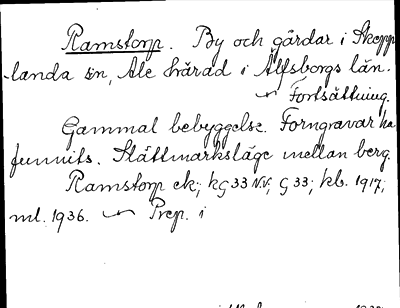 Ramstorp. By och gårdar i Skepp-
landa sn, Ale härad i Älfsborgs län.
Fortsättning.
Gammal bebyggelse. Forngravar ha
funnits. Slättmarksläge mellan berg.
Ramstorp ek; kG 33 N.V.; G 33; kb. 1917;
ml. 1936. Prep. i